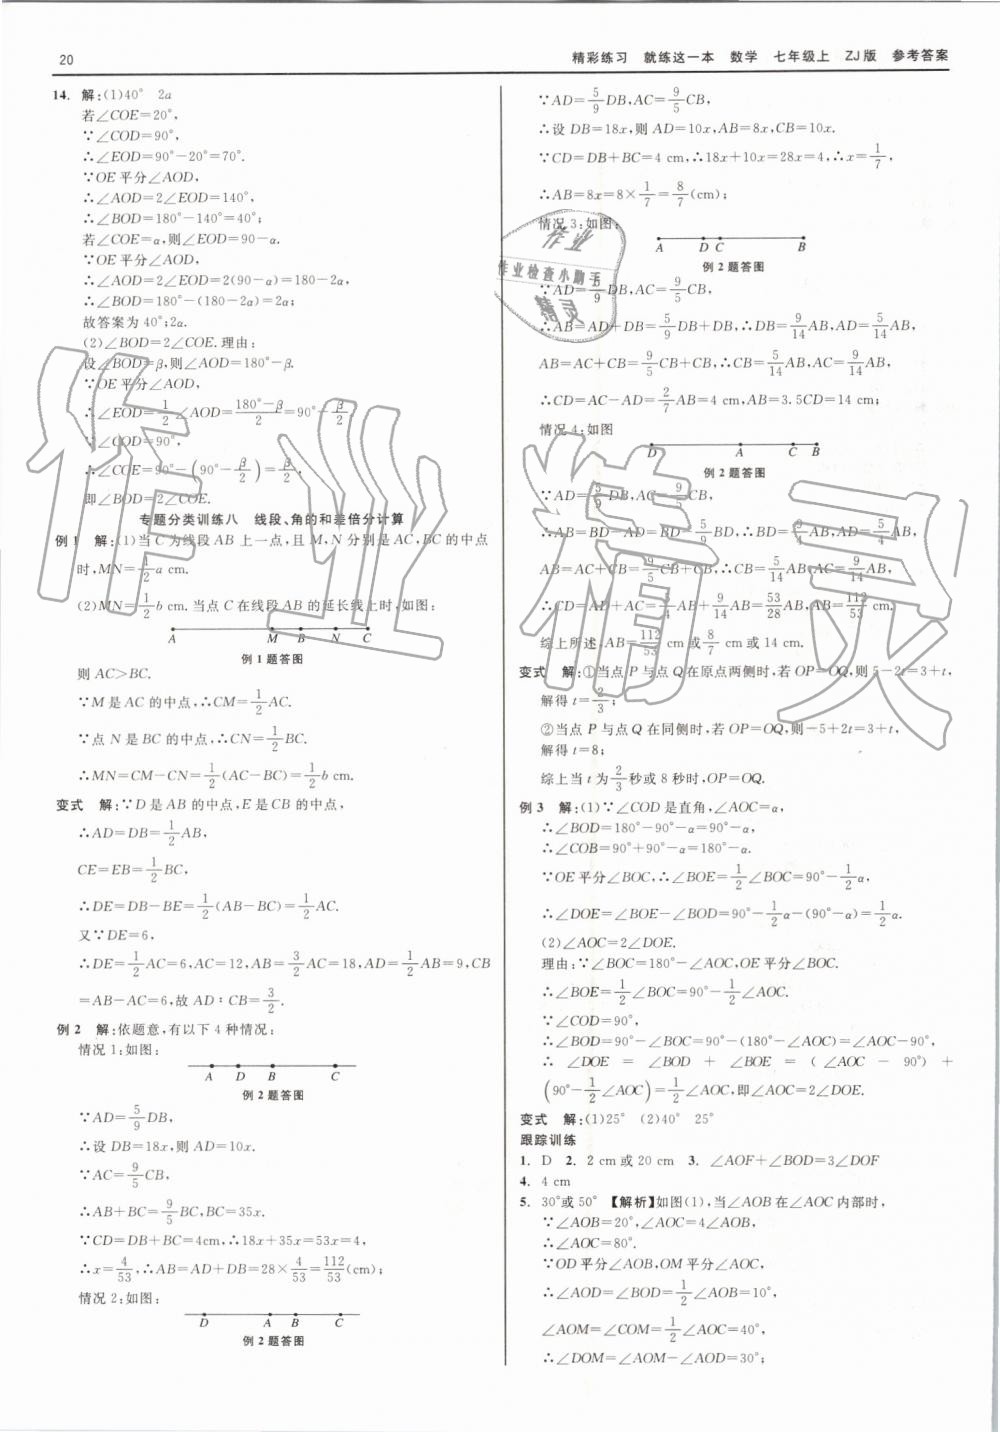 20
精彩练习 就练这一本 数学 七年级上 ZJ版 参考答案
14. 解:(1)40° 2α
若∠COE=20°,
∵∠COD=90°,
∴∠EOD=90°-20°=70°.
∵OE平分∠AOD,
∴∠AOD=2∠EOD=140°,
∴∠BOD=180°-140°=40°;
若∠COE=α,则∠EOD=90-α.
∵OE平分∠AOD,
∴∠AOD=2∠EOD=2(90-α)=180-2α,
∴∠BOD=180°-(180-2α)=2α;
故答案为40°;2α.
(2)∠BOD=2∠COE.理由:
设∠BOD=β,则∠AOD=180°-β.
∵OE平分∠AOD,
∴∠EOD=1/2∠AOD=(180°-β)/2=90°-β/2,
∵∠COD=90°,
∴∠COE=90°-(90°-β/2)=β/2,
即∠BOD=2∠COE.
专题分类训练八 线段、角的和差倍分计算
例1 解:(1)当C为线段AB上一点,且M,N分别是AC,BC的中点
时,MN=1/2 a cm.
(2)MN=1/2 b cm.当点C在线段AB的延长线上时,如图:
A M B N C
例1题答图
则AC>BC.
∵M是AC的中点,∴CM=1/2 AC.
∵点N是BC的中点,∴CN=1/2 BC.
∴MN=CM-CN=1/2(AC-BC)=1/2 b cm.
变式 解:∵D是AB的中点,E是CB的中点,
∴AD=DB=1/2 AB,
CE=EB=1/2 BC,
∴DE=DB-BE=1/2(AB-BC)=1/2 AC.
又∵DE=6,
∴DE=1/2 AC=6,AC=12,AB=3/2 AC=18,AD=1/2 AB=9,CB
=AB-AC=6,故AD∶CB=3/2.
例2 解:依题意,有以下4种情况:
情况1:如图:
A D B C
例2题答图
∵AD=5/9 DB,
∴设DB=18x,则AD=10x.
∵AC=9/5 CB,
∴AB+BC=9/5 BC,BC=35x.
∵CD=DB+BC=4cm,∴18x+35x=53x=4,
∴x=4/53,∴AB=AD+DB=28×4/53=112/53(cm);
情况2:如图:
D A B C
例2题答图
∵AD=5/9 DB,AC=9/5 CB,
∴设DB=18x,则AD=10x,AB=8x,CB=10x.
∵CD=DB+BC=4 cm,∴18x+10x=28x=4,∴x=1/7,
∴AB=8x=8×1/7=8/7(cm);
情况3:如图:
A D C B
例2题答图
∵AD=5/9 DB,AC=9/5 CB,
∴AB=AD+DB=5/9 DB+DB,∴DB=9/14 AB,AD=5/14 AB,
AB=AC+CB=9/5 CB+CB,∴CB=5/14 AB,AC=9/14 AB,
∴CD=AC-AD=2/7 AB=4 cm,AB=3.5CD=14 cm;
情况4:如图
D A C B
例2题答图
∵AD=5/9 DB,AC=9/5 CB,
∴AB=BD-AD=BD-5/9 BD,∴BD=9/4 AB,AD=5/4 AB,
AB=AC+CB=9/5 CB+CB,∴CB=5/14 AB,AC=9/14 AB,
∴CD=AD+AC=5/4 AB+9/14 AB=53/28 AB,AB=112/53 cm.
综上所述,AB=112/53 cm或8/7 cm或14 cm.
变式 解:①当点P与点Q在原点两侧时,若OP=OQ,则5-2t=3+t,
解得t=2/3;
②当点P与点Q在同侧时,若OP=OQ,则-5+2t=3+t,
解得t=8;
综上当t为2/3秒或8秒时,OP=OQ.
例3 解:(1)∵∠COD是直角,∠AOC=α,
∴∠BOD=180°-90°-α=90°-α,
∴∠COB=90°+90°-α=180°-α.
∵OE平分∠BOC,∴∠BOE=1/2∠BOC=90°-1/2 α,
∴∠DOE=∠BOE-∠BOD=90°-1/2 α-(90°-α)=1/2 α.
(2)∠AOC=2∠DOE.
理由:∵∠BOC=180°-∠AOC,OE平分∠BOC.
∴∠BOE=1/2∠BOC=90°-1/2∠AOC.
∵∠COD=90°,
∴∠BOD=90°-∠BOC=90°-(180°-∠AOC)=∠AOC-90°,
∴ ∠DOE = ∠BOD + ∠BOE = (∠AOC - 90°) +
(90°-1/2∠AOC)=1/2∠AOC,即∠AOC=2∠DOE.
变式 解:(1)25° (2)40° 25°
跟踪训练
1. D 2. 2 cm或20 cm 3. ∠AOF+∠BOD=3∠DOF
4. 4 cm
5. 30°或50° 【解析】如图(1),当∠AOB在∠AOC内部时,
∵∠AOB=20°,∠AOC=4∠AOB,
∴∠AOC=80°.
∵OD平分∠AOB,OM平分∠AOC,
∴∠AOD=∠BOD=1/2∠AOB=10°,
∠AOM=∠COM=1/2∠AOC=40°,
∴∠DOM=∠AOM-∠AOD=30°;
作业
作业检查小助手
精灵
作业精灵